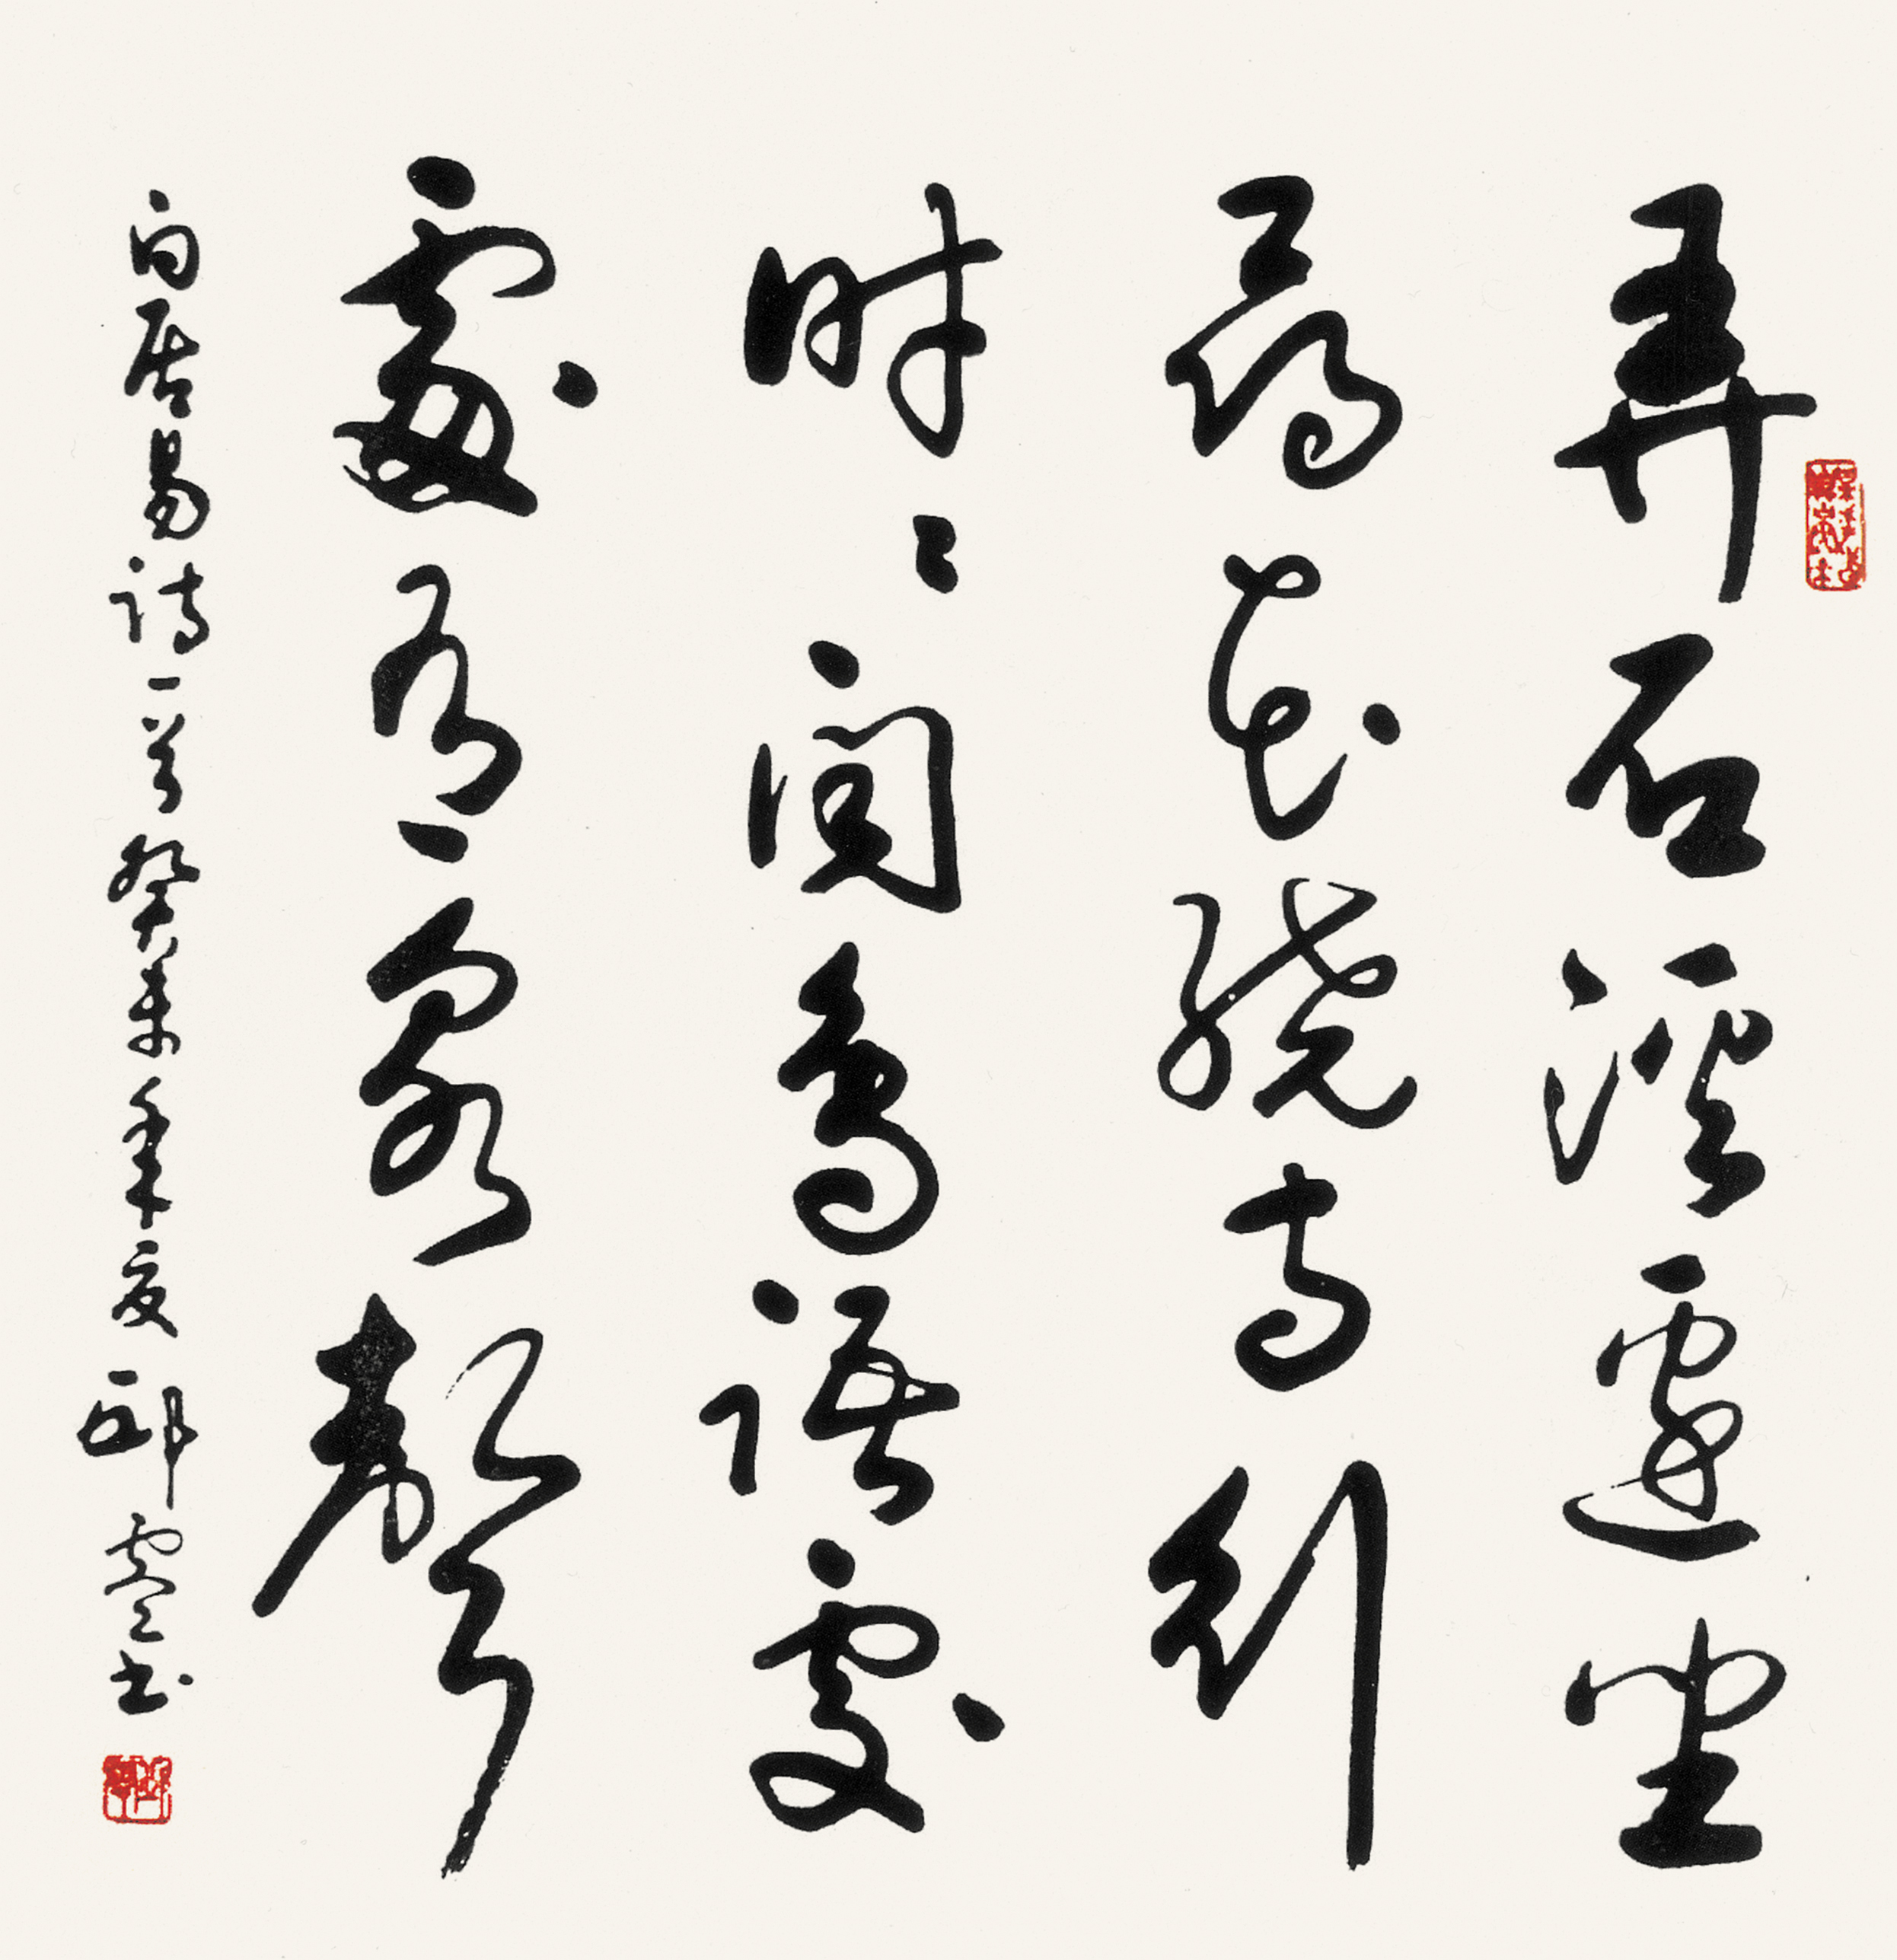 弄石溪邊坐
尋花繞寺行
時〻聞鳥語處
處有泉聲
白居易詩一首癸未年夏邱書